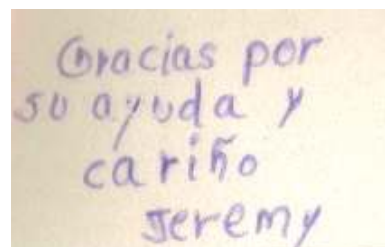 Gracias por
su ayuda y
cariño
Jeremy